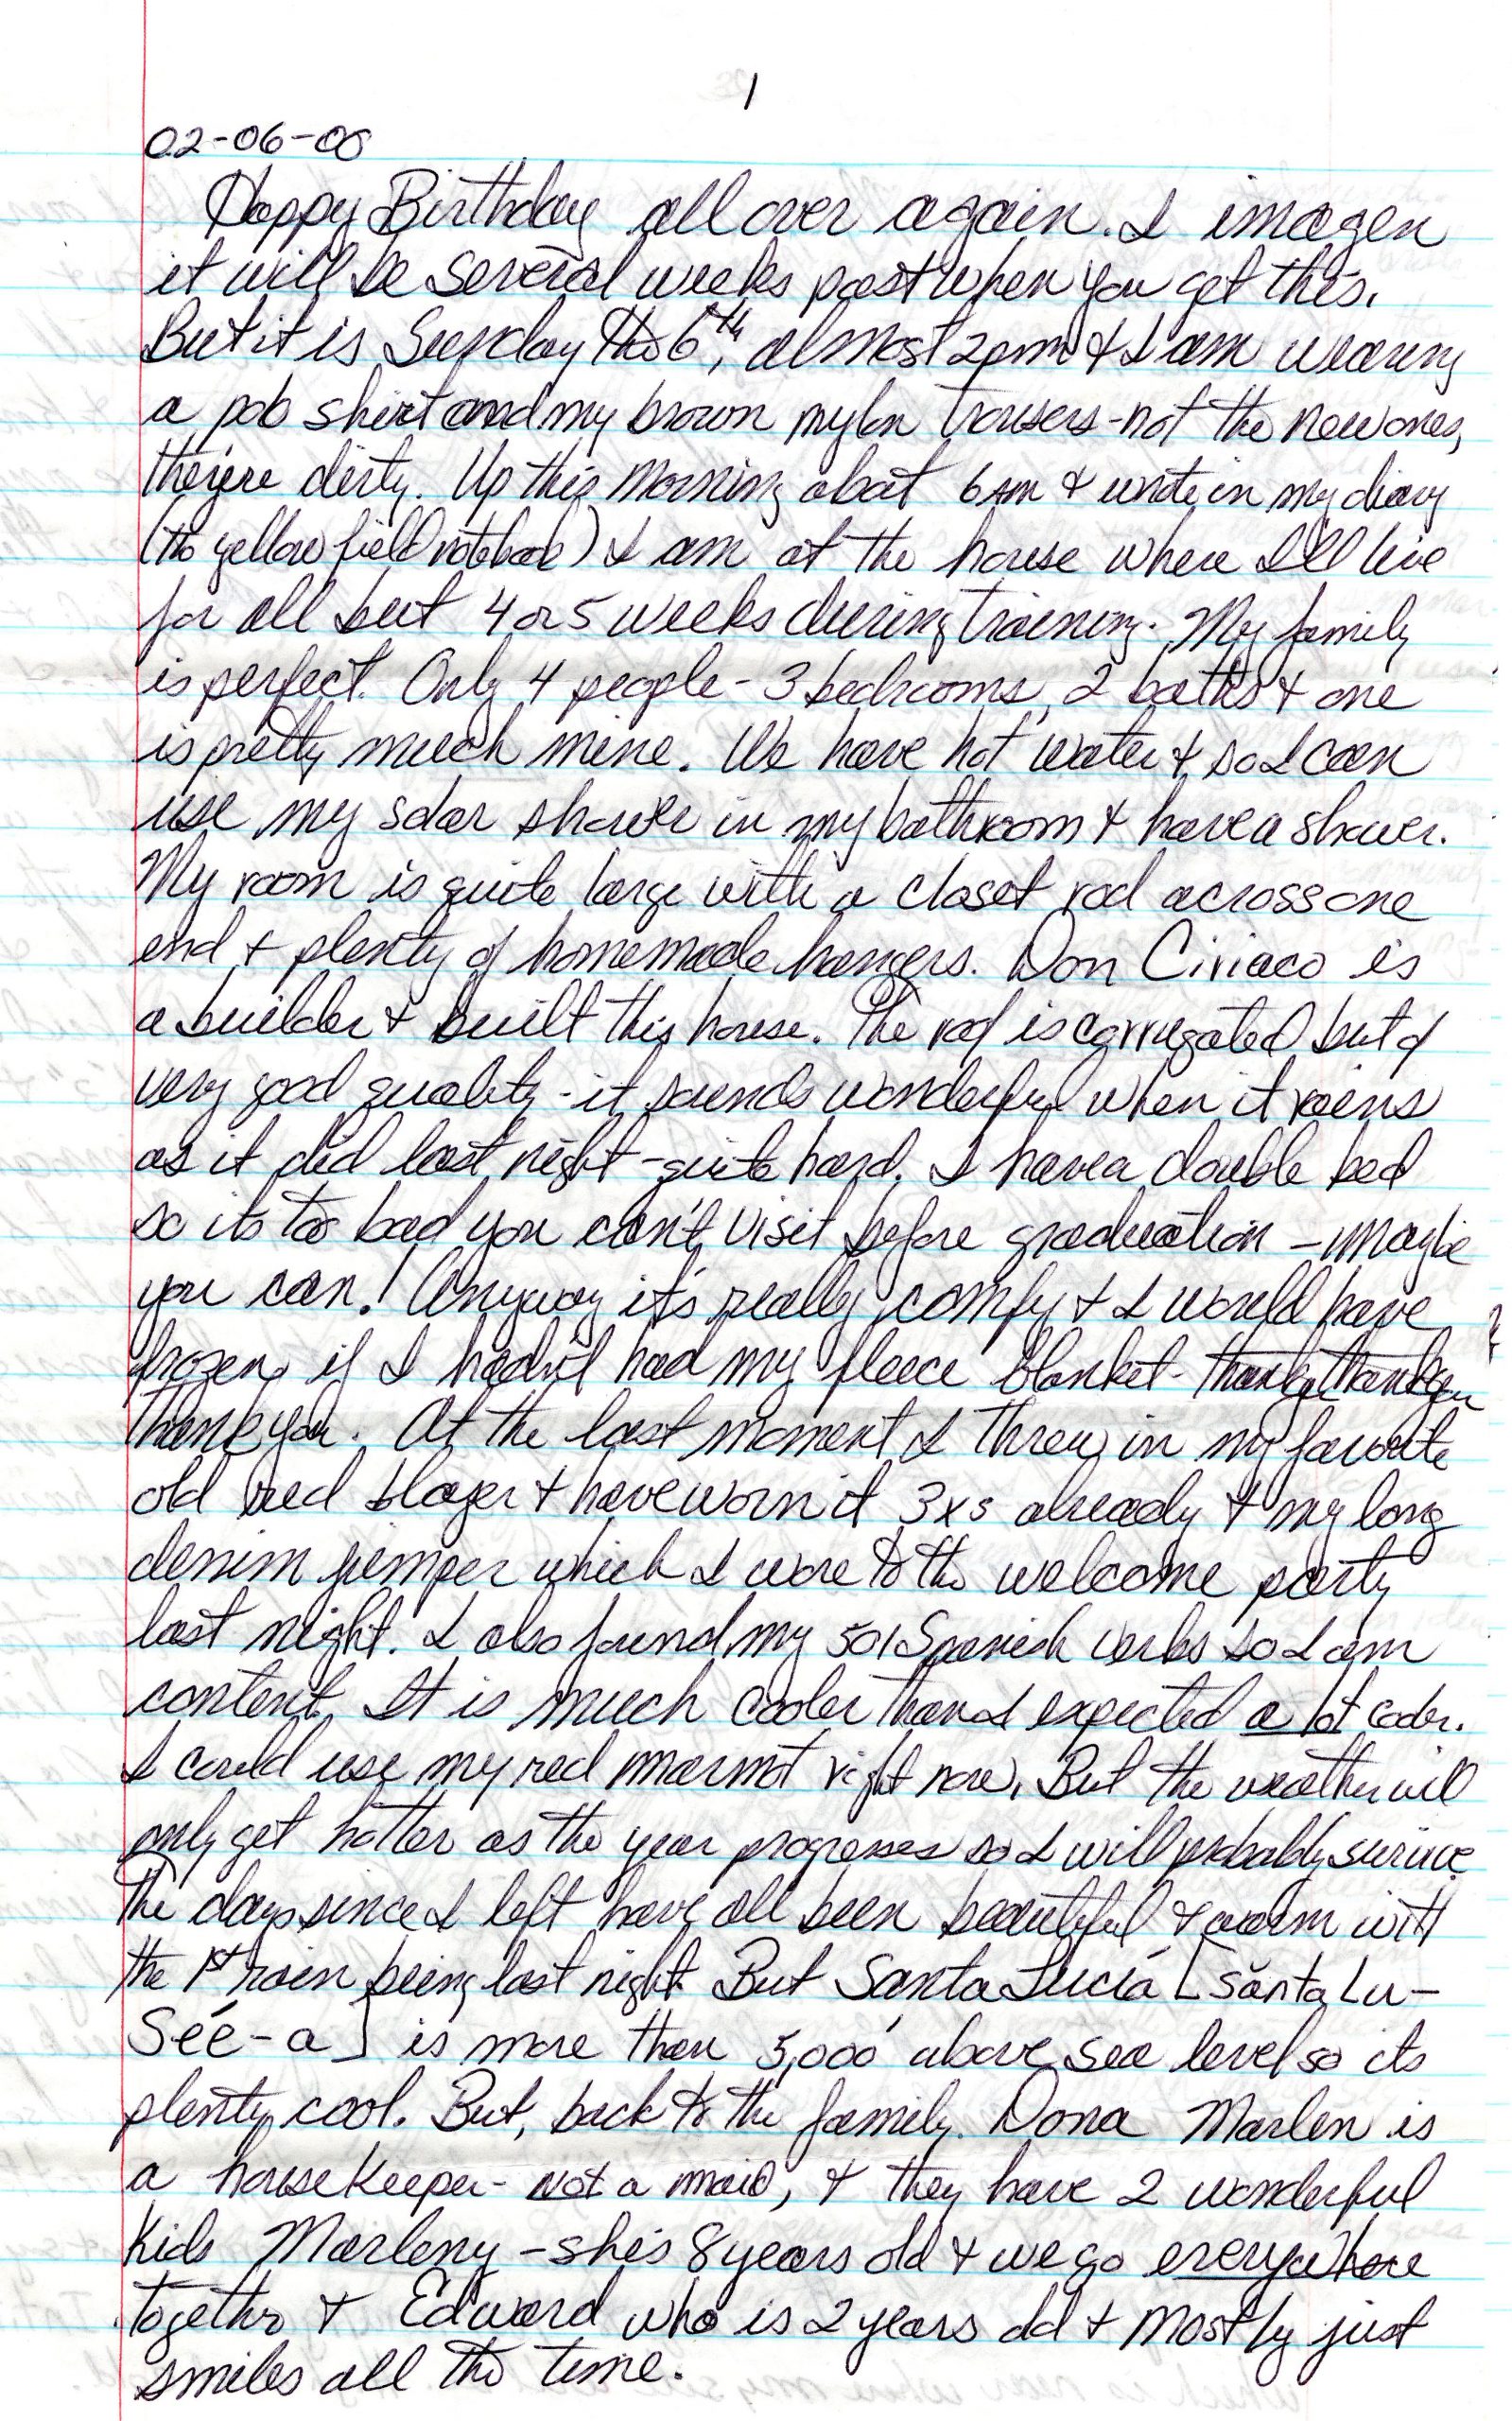 1
02-06-00
Happy Birthday all over again. I imagen
it will be several weeks past when you get this.
But it is Sunday the 6th, almost 2pm & I am wearing
a pob shirt and my brown nylon trousers - not the new ones,
they're dirty. Up this morning about 6 am & wrote in my diary
(the yellow field notebook) I am at the house where I'll live
for all but 4 or 5 weeks during training. My family
is perfect. Only 4 people - 3 bedrooms, 2 baths & one
is pretty much mine. We have hot water & so I can
use my solar shower in my bathroom & have a shower.
My room is quite large with a closet rod across one
end & plenty of homemade hangers. Don Ciriaco is
a builder & built this house. The roof is corrugated but of
very good quality - it sounds wonderful when it rains
as it did last night - quite hard. I have a double bed
so its too bad you can't visit before graduation - maybe
you can! Anyway it's really comfy & I would have
frozen if I hadn't had my fleece blanket - thank you thank you
thank you. At the last moment I threw in my favorite
old red blazer & have worn it 3xs already & my long
denim jumper which I wore to the welcome party
last night. I also found my 501 Spanish verbs so I am
content. It is much cooler than I expected a lot cooler.
I could use my red marmot right now. But the weather will
only get hotter as the year progresses so I will probably survive
The days since I left have all been beautiful & warm with
the 1st rain being last night. But Santa Lucía [Sănta Lu-
Sée-a] is more than 5,000' above sea level so its
plenty cool. But, back to the family. Dona Marlen is
a housekeeper - not a maid, & they have 2 wonderful
kids Marleny - she's 8 years old & we go everywhere
together & Edward who is 2 years old & mostly just
smiles all the time.